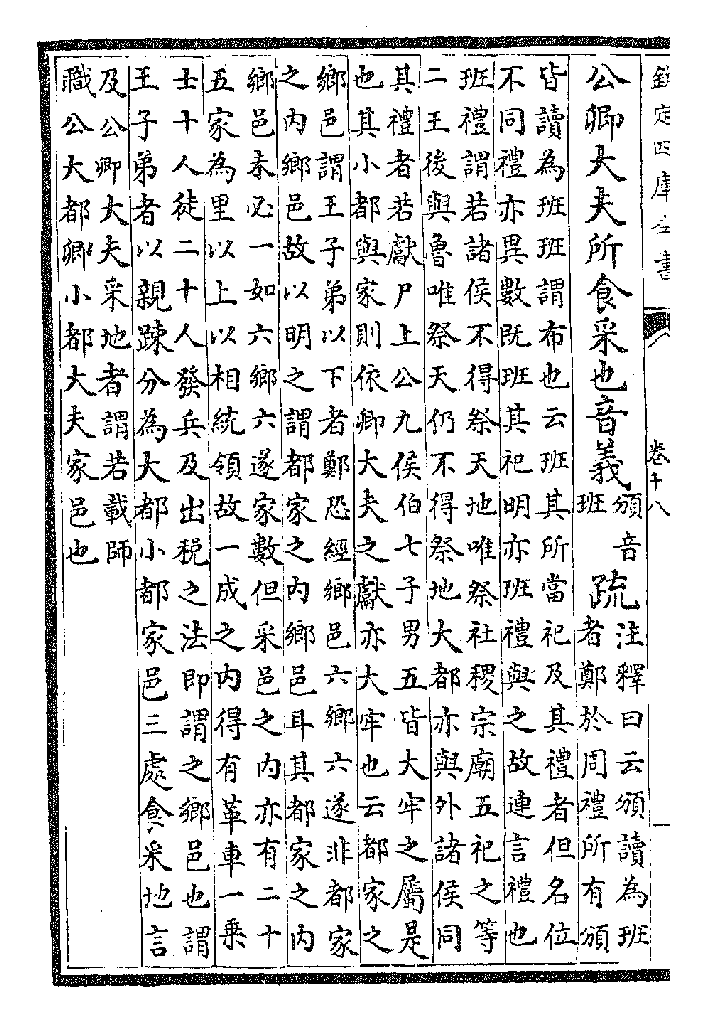 欽定四庫全書 卷十八
公卿大夫所食采也音義 頒音
班
疏 注釋曰云頒讀為班
者鄭於周禮所有頒
皆讀為班班謂布也云班其所當祀及其禮者但名位
不同禮亦異數既班其祀明亦班禮與之故連言禮也
班禮謂若諸侯不得祭天地唯祭社稷宗廟五祀之等
二王後與魯唯祭天仍不得祭地大都亦與外諸侯同
其禮者若獻尸上公九侯伯七子男五皆大牢之屬是
也其小都與家則依卿大夫之獻亦大牢也云都家之
鄉邑謂王子弟以下者鄭恐經鄉邑六鄉六遂非都家
之內鄉邑故以明之謂都家之內鄉邑耳其都家之內
鄉邑未必一如六鄉六遂家數但采邑之內亦有二十
五家為里以上以相統領故一成之內得有革車一乘
士十人徒二十人發兵及出稅之法即謂之鄉邑也謂
王子弟者以親疎分為大都小都家邑三處食采地言
及公卿大夫采地者謂若載師
職公大都卿小都大夫家邑也